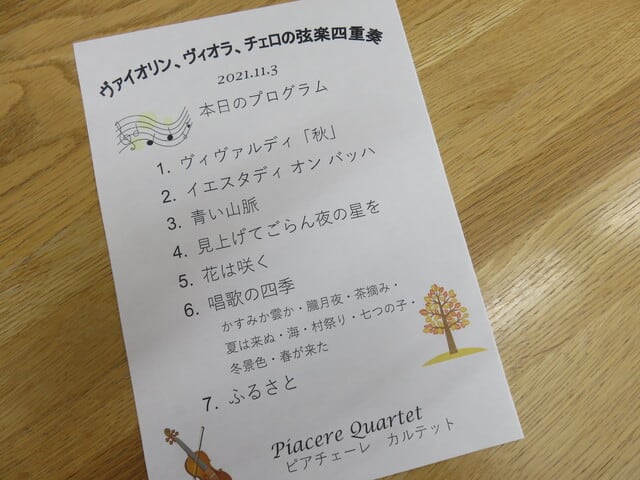 ヴァイオリン、ヴィオラ、チェロの弦楽四重奏
2021.11.3
本日のプログラム
1. ヴィヴァルディ「秋」
2. イエスタディ オン バッハ
3. 青い山脈
4. 見上げてごらん夜の星を
5. 花は咲く
6. 唱歌の四季
かすみか雲か・朧月夜・茶摘み・
夏は来ぬ・海・村祭り・七つの子・
冬景色・春が来た
7. ふるさと
Piacere Quartet
ピアチェーレ カルテット